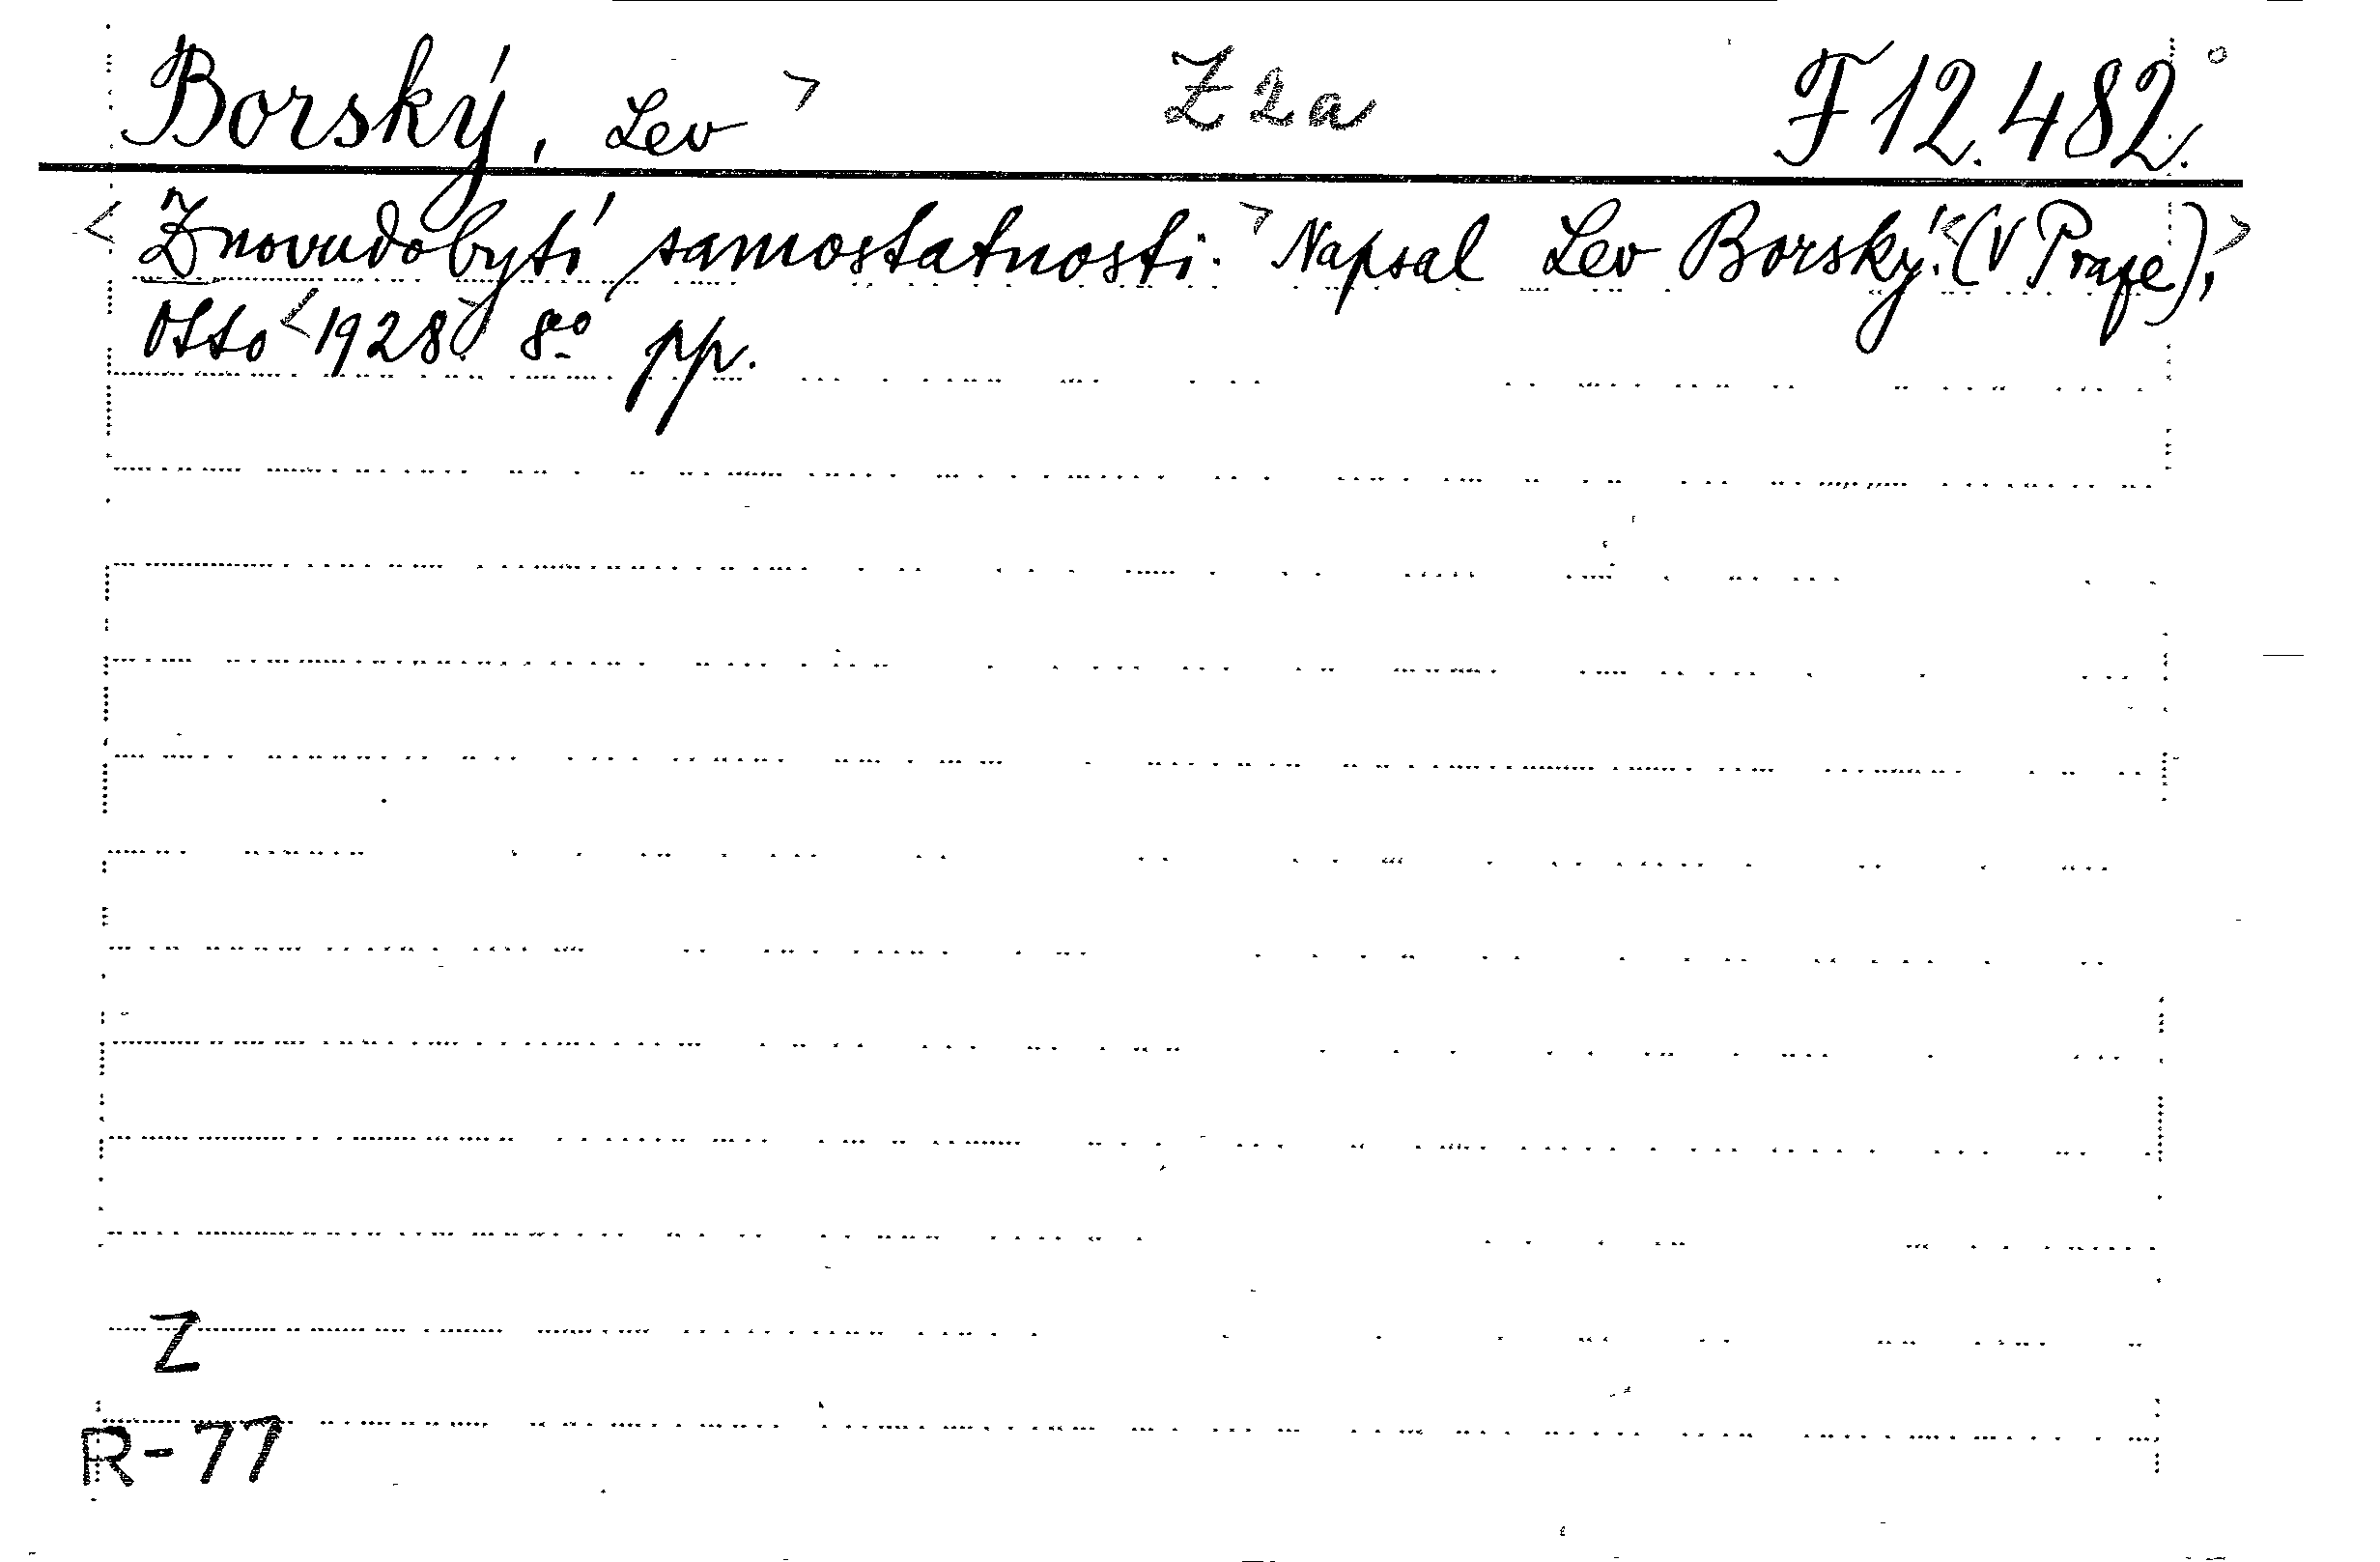 Borský, Lev > Z 2a F 12.482.°
< Znovudobytí samostatnosti. > Napsal Lev Borský. < (V Praze), >
Otto < 1928. > 8º pp.
Z
R-77